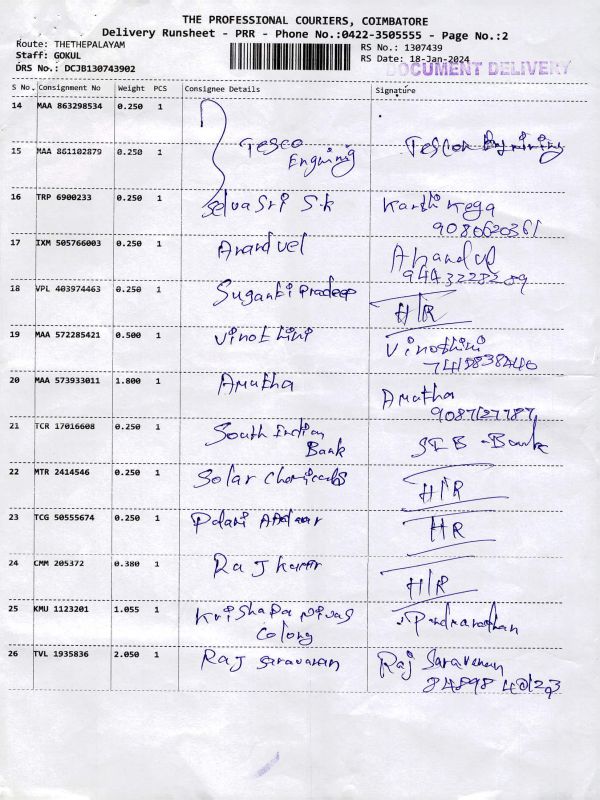 THE PROFESSIONAL COURIERS, COIMBATORE
Delivery Runsheet - PRR - Phone No.:0422-3505555 - Page No.:2
Route: THETHEPALAYAM RS No.: 1307439
Staff: GOKUL RS Date: 18-Jan-2024
DRS No.: DCJB130743902 DOCUMENT DELIVERY
S No. Consignment No Weight PCS Consignee Details Signature
14 MAA 863298534 0.250 1
15 MAA 861102879 0.250 1 Tesco
16 TRP 6900233 0.250 1 Selva Sri S.k Karthi Kega
9080620361
17 IXM 505766003 0.250 1 Anand vel Anandvel
9443228289
18 VPL 403974463 0.250 1 Suganti Pradeep H/R
19 MAA 572285421 0.500 1 Vinothini Vinothini
20 MAA 573933011 1.800 1 Amutha Amutha
9087727787
21 TCR 17016608 0.250 1 South Indian
Bank SIB - Bank
22 MTR 2414546 0.250 1 Solar Chemicals H/R
23 TCG 50555674 0.250 1 HR
24 CMM 205372 0.380 1 Raj kumar H/R
25 KMU 1123201 1.055 1
Colony
26 TVL 1935836 2.050 1 Raj Saravanan Raj Saravanan